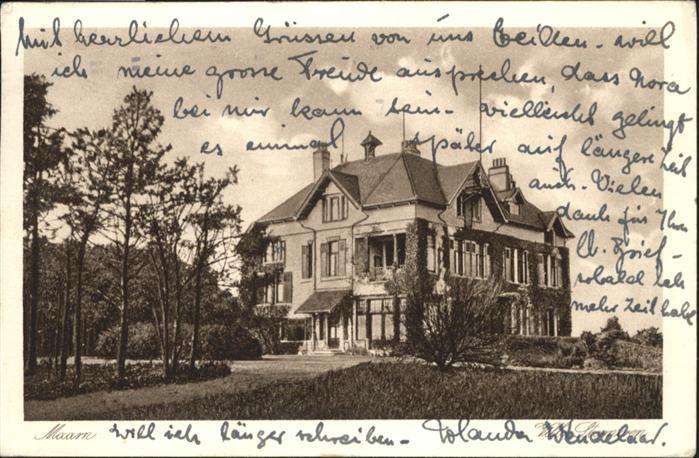 Mit herzlichem Grüssen von uns beiden - will
ich meine grosse Freude aussprechen, dass Nora
bei mir kann sein - vielleicht gelingt
es einmal später auf länger Zeit
auch. Vielen
dank für Ihr
lb. Brief -
sobald ich
mehr Zeit habe
will ich länger schreiben - Wendelaar.
Maarn